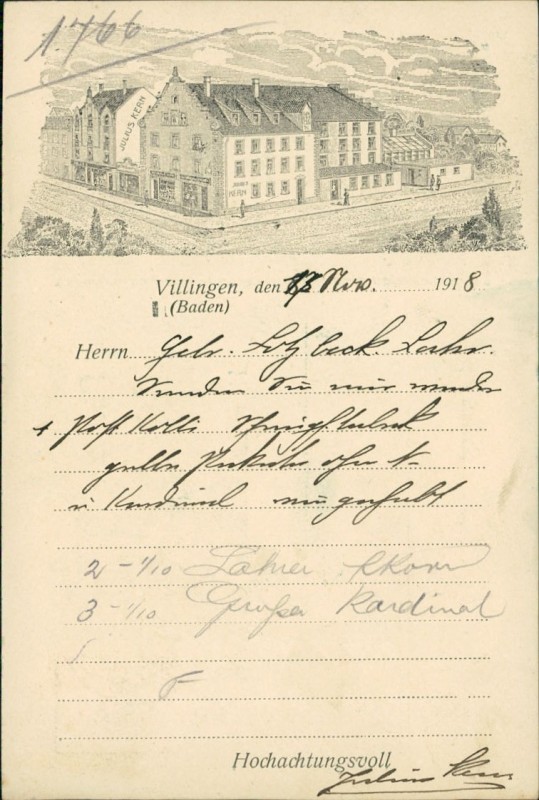 1.766
JULIUS KERN
JULIUS KERN
Villingen, den 13 Nov. 1918
(Baden)
Herrn Gebr. Lotzbeck. Lahr.
Senden Sie mir wieder
1 Post Kolli Schnupftabak
gelbe Pakete ohne N
u Kardinal wie gehabt
2 - 1/10 Lahrer
3 - 1/10 Großer Kardinal
Hochachtungsvoll
Julius Kern